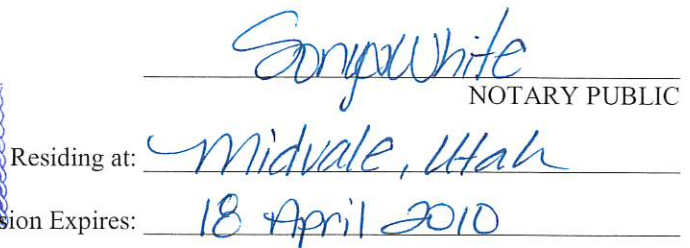 Sonya White
NOTARY PUBLIC
Residing at: Midvale, Utah
sion Expires: 18 April 2010